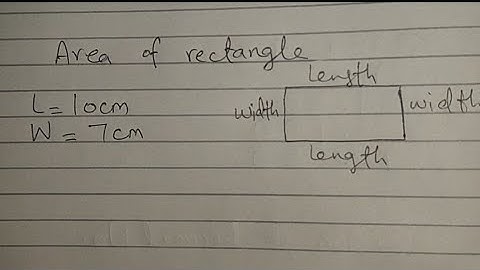 Area of rectangle
Length
L = 10cm
width
width
W = 7cm
Length